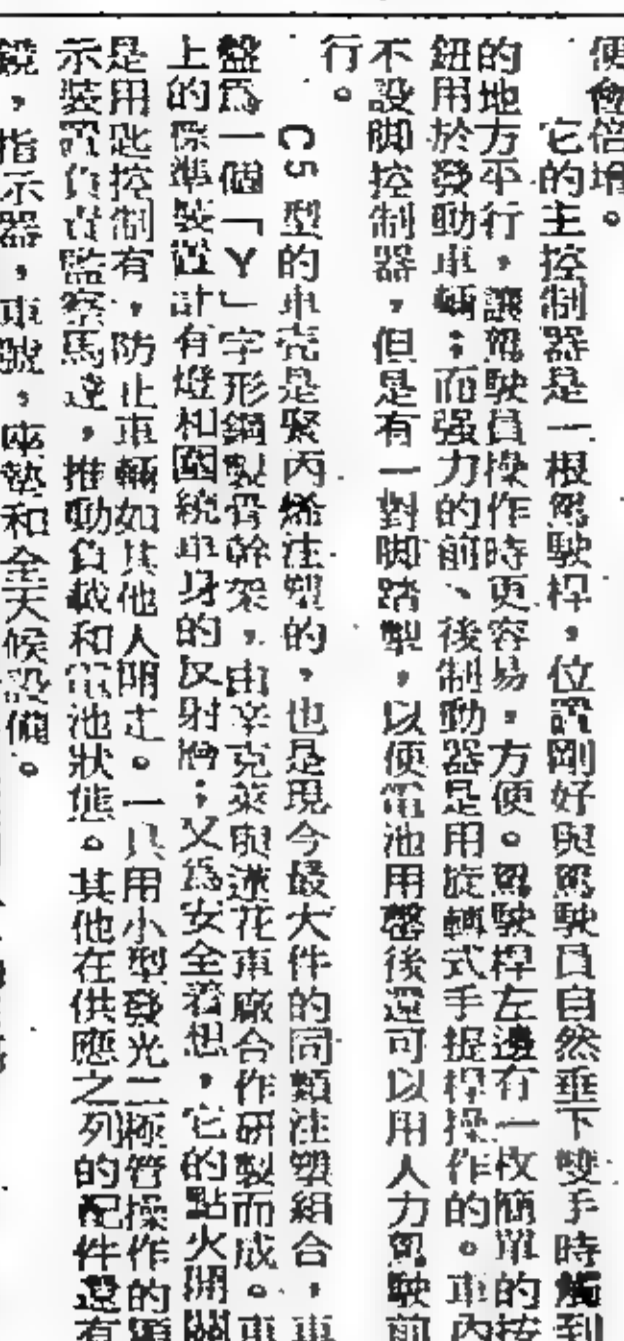 便會倍增。
它的主控制器是一根駕駛桿，位置剛好與駕駛員自然垂下雙手時觸到
的地方平行，讓駕駛員操作時更容易，方便。駕駛桿左邊有一枚簡單的按
鈕用於發動車輛；而强力的前、後制動器是用旋轉式手握桿操作的。車內
不設脚控制器，但是有一對脚踏掣，以便電池用罄後還可以用人力駕駛前
行。
C5型的車壳是聚丙烯注塑的，也是現今最大件的同類注塑組合，車
盤爲一個「Y」字形鋼製骨幹架，由辛克萊與蓮花車廠合作研製而成。車
上的標準裝置計有燈和圍繞車身的反射牌；又爲安全着想，它的點火開關
是用匙控制有，防止車輛如其他人開走。一具用小型發光二極管操作的顯
示裝置負責監察馬達，推動負載和電池狀態。其他在供應之列的配件還有
鏡，指示器，車號，座墊和全天候設備。